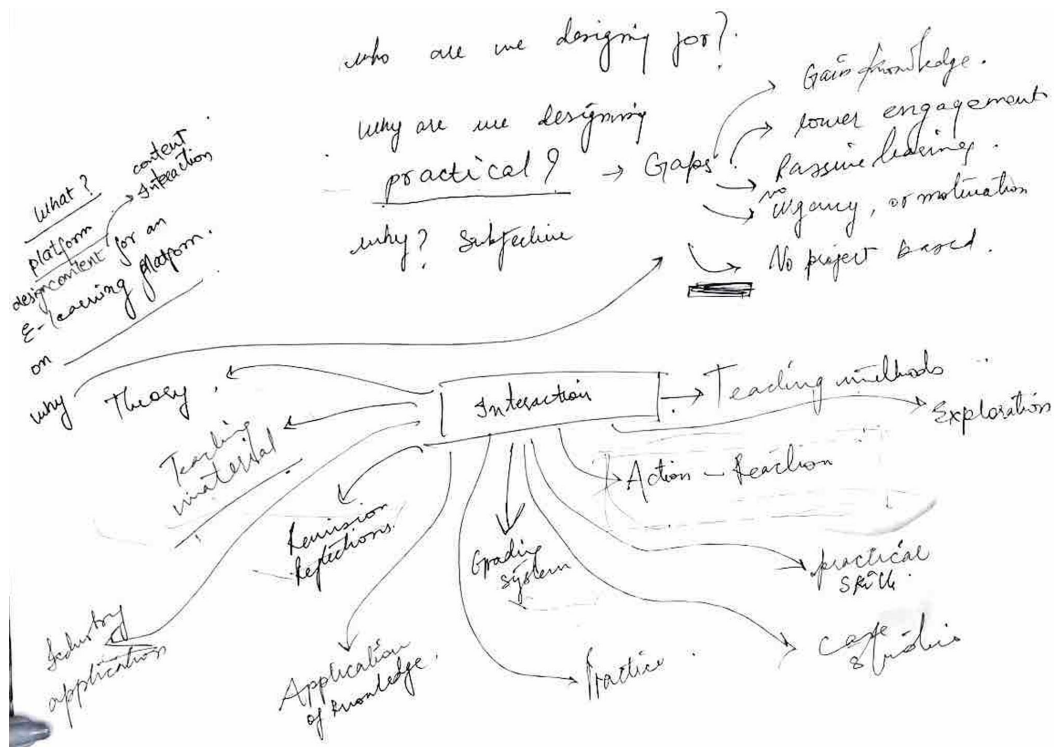 who are we designing for?
why are we designing
practical? → Gaps
Gain knowledge.
lower engagement
Passive learning.
no
urgency, or motivation
No project based.
why? Subjective
What?
platform
design content for an
E-learning platform.
content
Interaction
on
why
Theory,
Interaction
Teaching methods
Exploration
Teaching
material
Action - Reaction
Revision
Reflections.
Grading
system
practical
skill.
Industry
application
Application
of knowledge.
Practice
case
studies